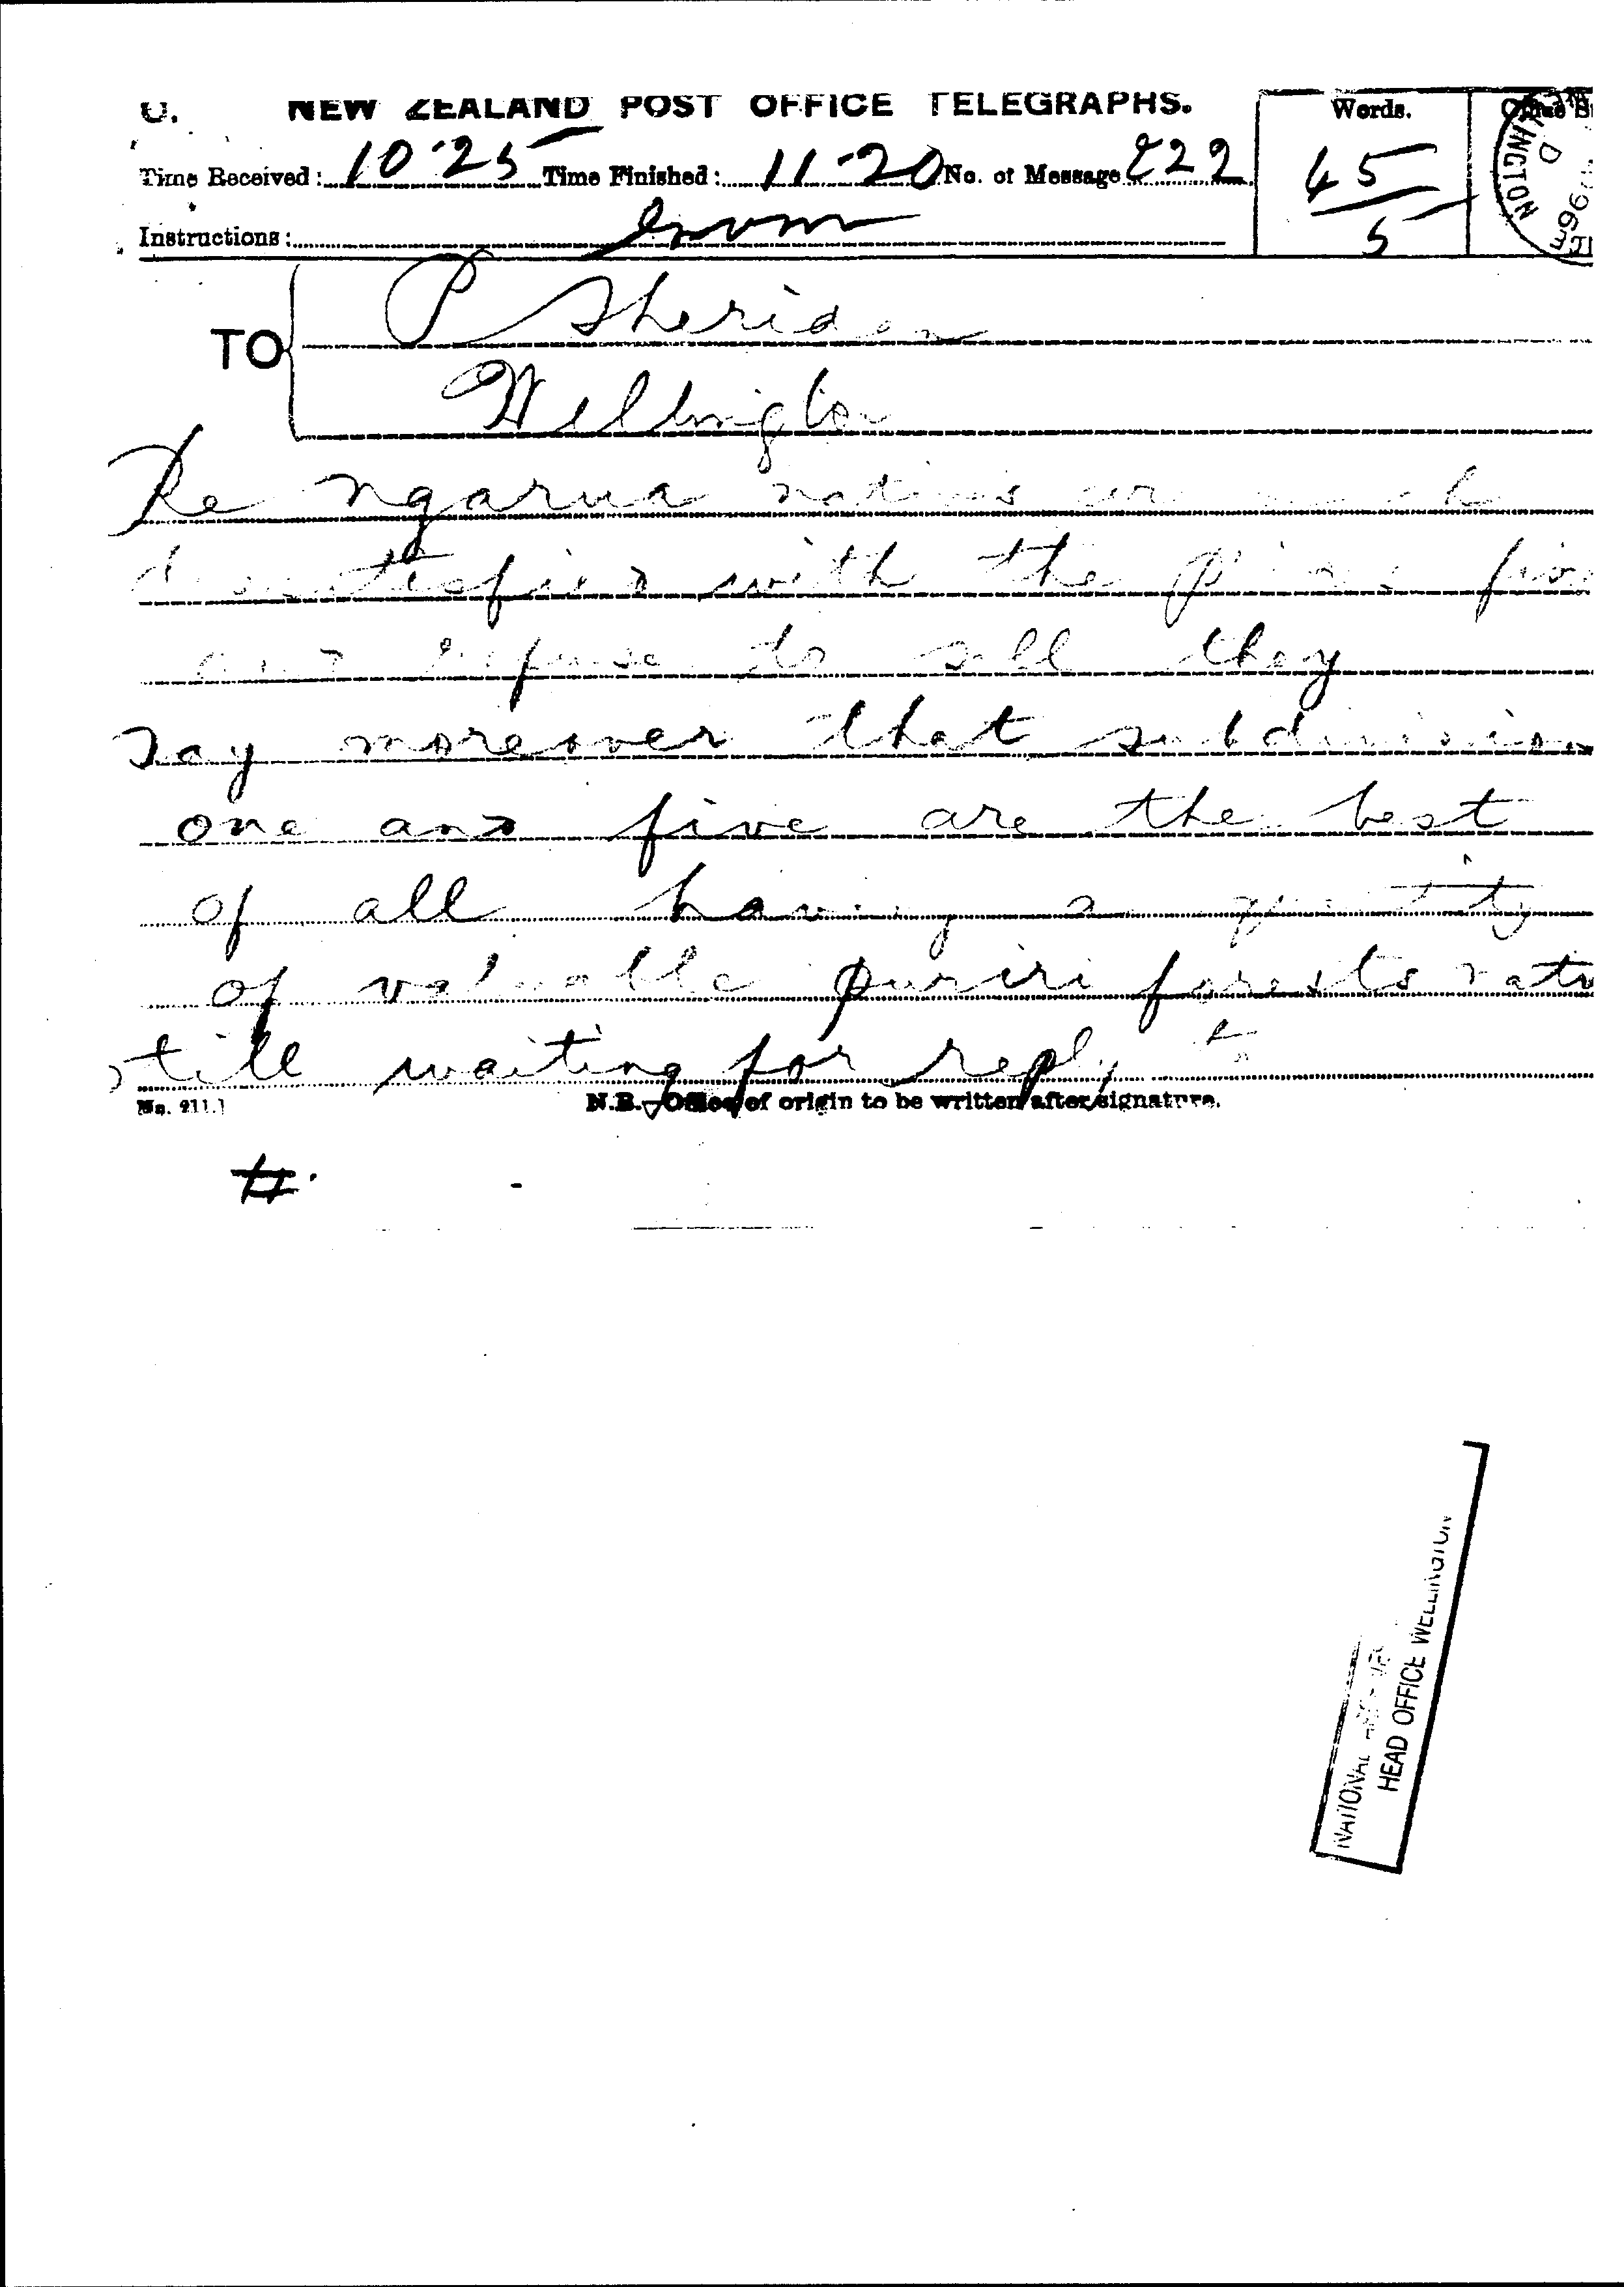 NEW ZEALAND POST OFFICE TELEGRAPHS.
Words.
Time Received: 10.25 Time Finished: 11.20 No. of Message 222
45
5
Instructions:
TO P Sheridan
Wellington
Re ngarua natives are much
dissatisfied with the price
and refuse to sell they
say moreover that subdivision
one and five are the best
of all having a quantity
of valuable puriri forests
still waiting for reply to
No. 911.]
N.B.—Office of origin to be written after signature.
NATIONAL ARCHIVES
HEAD OFFICE WELLINGTON